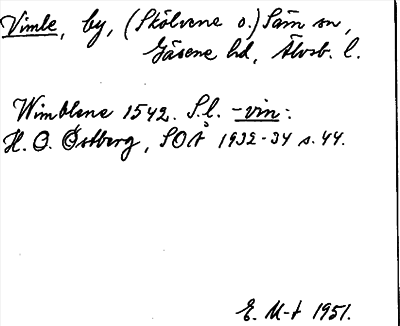 Vimle, by, (Skölvene o.) Säm sn,
Gäsene hd, Älvsb. l.
Wimblene 1542. S.l. - vin-:
H. O. Östberg, SOÅ 1932-34 s. 44.
E. M-t 1951.